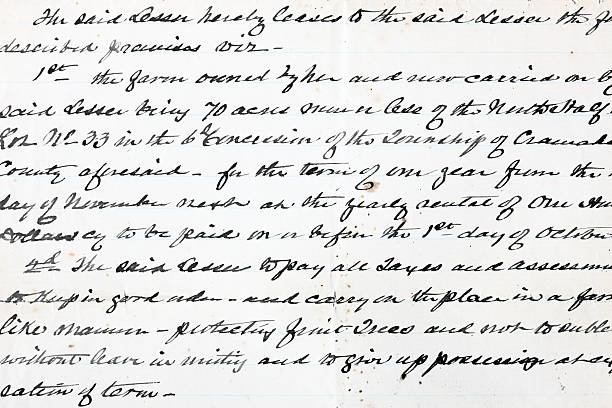 The said Lesser hereby leases to the said Lesser the
described premises viz -
1st the farm owned by her and now carried on by
said Lesser being 70 acres more or less of the North Half of
Lot No 33 in the 6th Concession of the Township of Cramah
County aforesaid - for the term of one year from the
day of November next at the yearly rental of One Hun
Dollars cy to be paid on or before the 1st day of October
2d The said Lesser to pay all Taxes and assessm
to Keep in good order - and carry on the place in a farm
like manner - protecting fruit Trees and not to sublet
without leave in writing and to give up possession at
sation of term -